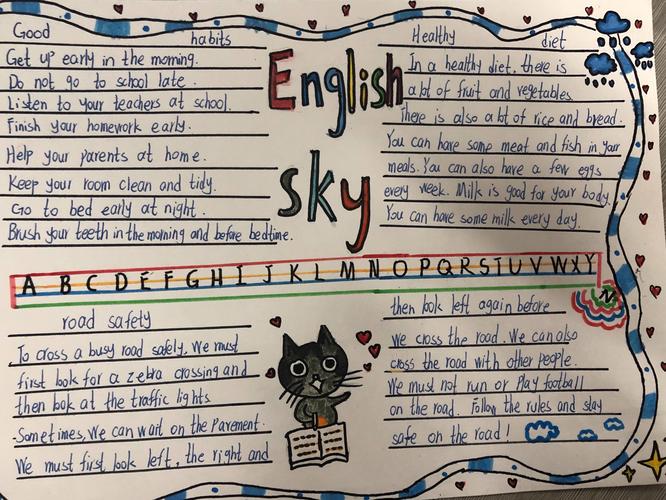 Good habits
Get up early in the morning.
Do not go to school late.
Listen to your teachers at school.
Finish your homework early.
Help your parents at home.
Keep your room clean and tidy.
Go to bed early at night.
Brush your teeth in the morning and before bedtime.
English
sky
Healthy diet
In a healthy diet, there is
a lot of fruit and vegetables.
There is also a lot of rice and bread.
You can have some meat and fish in your
meals. You can also have a few eggs
every week. Milk is good for your body.
You can have some milk every day.
A B C D E F G H I J K L M N O P Q R S T U V W X Y
Z
road safety
To cross a busy road safely, we must
first look for a zebra crossing and
then look at the traffic lights
Sometimes, We can wait on the Pavement.
We must first look left, the right and
then look left again before
we cross the road. We can also
cross the road with other people.
We must not run or Play football
on the road. Follow the rules and stay
safe on the road!